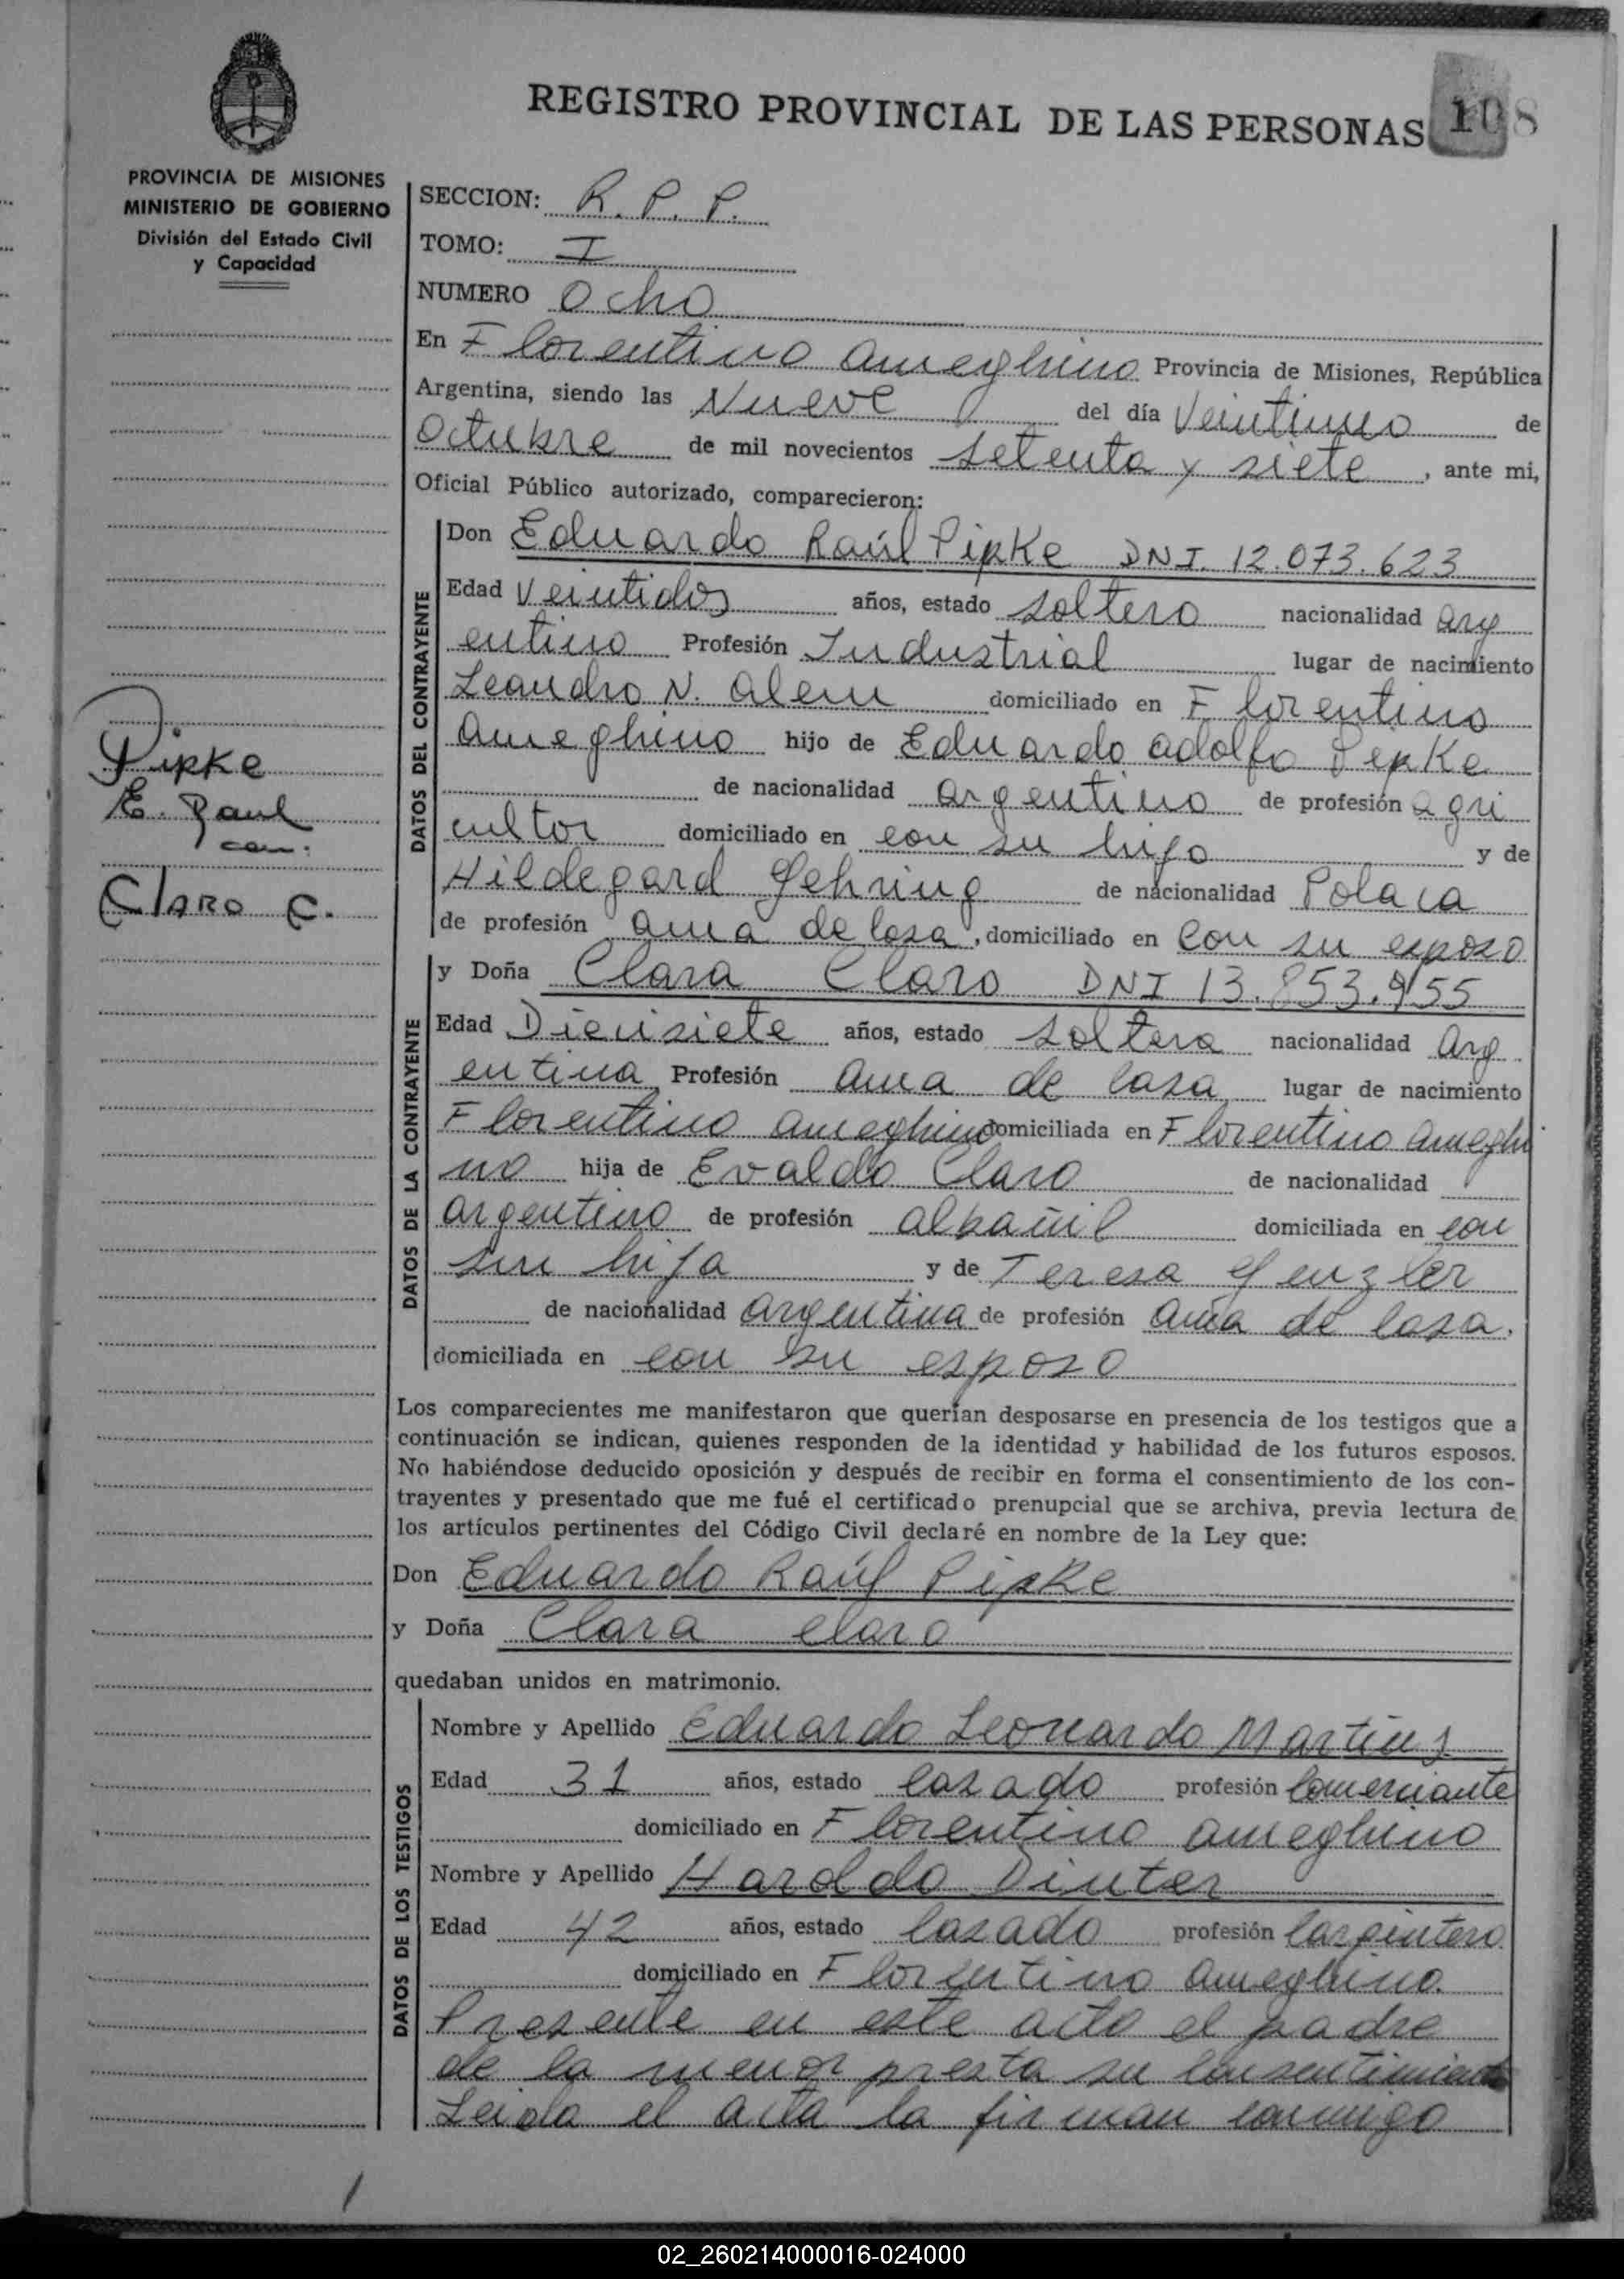 REGISTRO PROVINCIAL DE LAS PERSONAS 108
PROVINCIA DE MISIONES
MINISTERIO DE GOBIERNO
División del Estado Civil
y Capacidad
SECCION: R. P. P.
TOMO: I
NUMERO Ocho
En Florentino Ameghino Provincia de Misiones, República
Argentina, siendo las Nueve del día Veintiuno de
Octubre de mil novecientos setenta y siete, ante mi,
Oficial Público autorizado, comparecieron:
DATOS DEL CONTRAYENTE
Don Eduardo Raúl Pipke DNI. 12.073.623
Edad Veintidos años, estado soltero nacionalidad arg
entino Profesión Industrial lugar de nacimiento
Leandro N. Alem domiciliado en Florentino
Ameghino hijo de Eduardo Adolfo Pipke
de nacionalidad argentino de profesión agri
cultor domiciliado en con su hijo y de
Hildegard Gehring de nacionalidad Polaca
de profesión ama de casa, domiciliado en con su esposo
Pipke
E. Raul
con:
Claro C.
DATOS DE LA CONTRAYENTE
y Doña Clara Claro DNI 13.853.955
Edad Diecisiete años, estado soltera nacionalidad arg
entina, Profesión ama de casa lugar de nacimiento
Florentino Ameghino domiciliada en Florentino Ameghi
no hija de Evaldo Claro de nacionalidad
argentino de profesión albañil domiciliada en con
su hija y de Teresa Genzler
de nacionalidad argentina de profesión ama de casa.
domiciliada en con su esposo
Los comparecientes me manifestaron que querían desposarse en presencia de los testigos que a
continuación se indican, quienes responden de la identidad y habilidad de los futuros esposos.
No habiéndose deducido oposición y después de recibir en forma el consentimiento de los con-
trayentes y presentado que me fué el certificado prenupcial que se archiva, previa lectura de
los artículos pertinentes del Código Civil declaré en nombre de la Ley que:
Don Eduardo Raúl Pipke
y Doña Clara Claro
quedaban unidos en matrimonio.
DATOS DE LOS TESTIGOS
Nombre y Apellido Eduardo Leonardo Martins
Edad 31 años, estado casado profesión Comerciante
domiciliado en Florentino Ameghino
Nombre y Apellido Haroldo Dinter
Edad 42 años, estado casado profesión Carpintero
domiciliado en Florentino Ameghino.
Presente en este acto el padre
de la menor presta su consentimiento
Leida el acta la firman conmigo
02_260214000016-024000